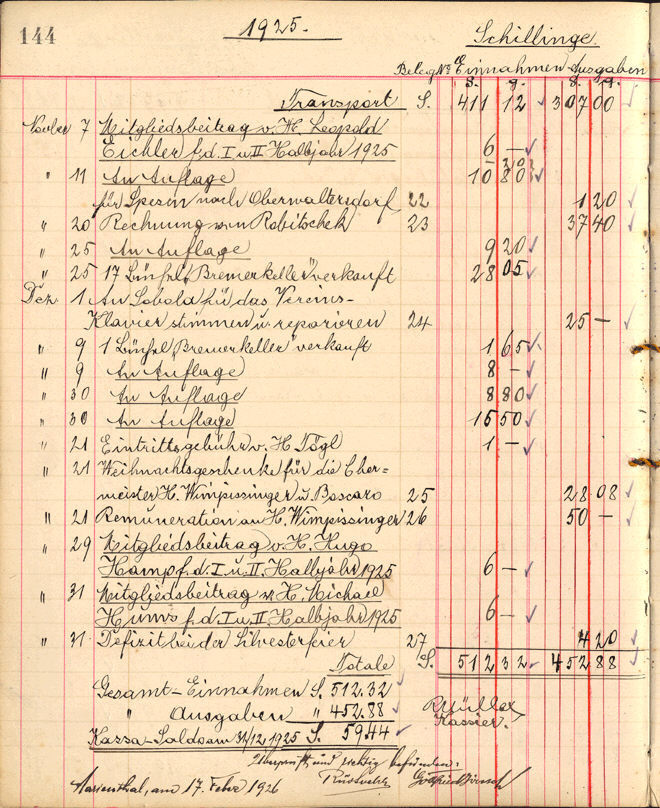 144
1925.-
Schillinge.
Beleg No Einnahmen Ausgaben
S. g. S. g.
Transport S. 411 12 307 00
Novber 7 Mitgliedsbeitrag v. H. Leopold
Eichler f. d. I u. II Halbjahr 1925 6 —
" 11 An Auflage 10 80
für Spesen nach Oberwaltersdorf 22 1 20
" 20 Rechnung von Robitschek 23 37 40
" 25 An Auflage 9 20
" 25 17 "Bremerkeller" verkauft 28 05
Dez. 1 An Sobola für das Vereins-
Klavier stimmen u. reparieren 24 25 —
" 9 1 "Bremerkeller" verkauft 1 65
" 9 An Auflage 8 —
" 30 An Auflage 8 80
" 30 An Auflage 15 50
" 21 Eintrittsgebühr v. H. Tögl 1 —
" 21 Weihnachtsgeschenke für die Chor=
meister H. Wimpissinger u. Boscaro 25 28 08
" 21 Remuneration an H. Wimpissinger 26 50 —
" 29 Mitgliedsbeitrag v. H. Hugo
Hampf. d. I. u. II. Halbjahr 1925 6 —
" 31 Mitgliedsbeitrag v. H. Michael
f. d. I u. II Halbjahr 1925 6 —
" 31 Defizit bei der Silvesterfeier 27 4 20
Totale S. 512 32 452 88
Gesamt-Einnahmen S. 512.32
" Ausgaben " 452.88
Kassa-Saldo am 31/12 1925 S. 59.44
Müller
Kassier.
Überprüft und richtig befunden:
Marienthal, am 17. Febr 1926